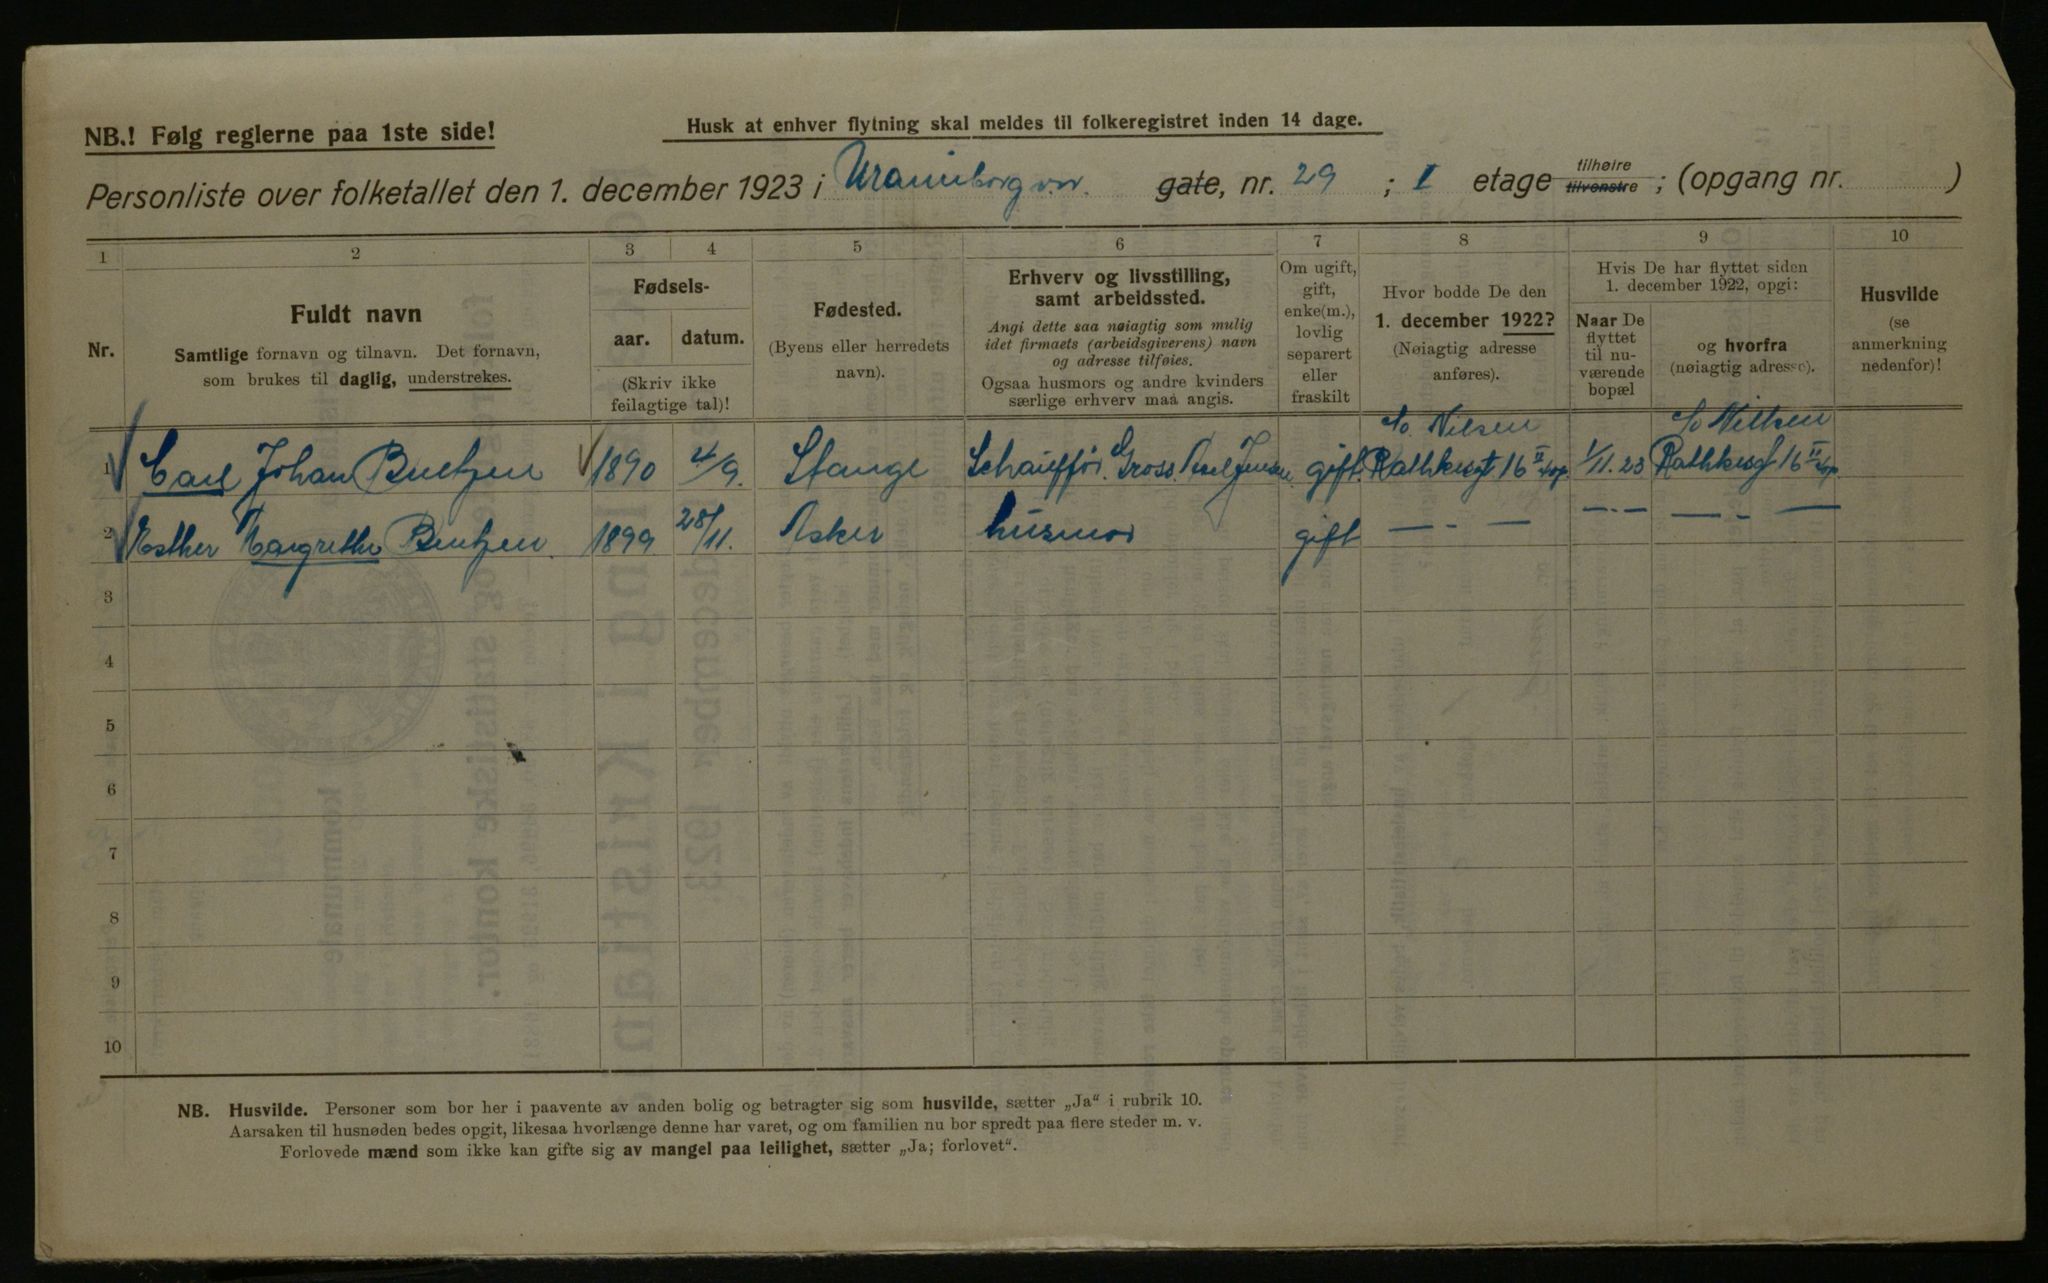 NB.! Følg reglerne paa 1ste side!
Husk at enhver flytning skal meldes til folkeregistret inden 14 dage.
Personliste over folketallet den 1. december 1923 i Uranienborgvn. gate, nr. 29 ; I etage tilhøire tilvenstre ; (opgang nr. )
1 2 3 4 5 6 7 8 9 10
Nr.
Fuldt navn
Samtlige fornavn og tilnavn. Det fornavn,
som brukes til daglig, understrekes.
Fødsels-
aar. datum.
(Skriv ikke
feilagtige tal)!
Fødested.
(Byens eller herredets
navn).
Erhverv og livsstilling,
samt arbeidssted.
Angi dette saa nøiagtig som mulig
idet firmaets (arbeidsgiverens) navn
og adresse tilføies.
Ogsaa husmors og andre kvinders
særlige erhverv maa angis.
Om ugift,
gift,
enke(m.),
lovlig
separert
eller
fraskilt
Hvor bodde De den
1. december 1922?
(Nøiagtig adresse
anføres).
Hvis De har flyttet siden
1. december 1922, opgi:
Naar De
flyttet
til nu-
værende
bopæl
og hvorfra
(nøiagtig adresse).
Husvilde
(se
anmerkning
nedenfor)!
Nilsen
1 Carl Johan Bentzen 1890 4/9. Stange Schaufför. Gross. Axel Jensen gift. Rathkesgt 16 II 1/11.23 Rathkesgt 16 II
2 Esther Margrethe Bentzen. 1899 28/11. Asker husmor gift — - — — - — — - —
3
4
5
6
7
8
9
10
NB. Husvilde. Personer som bor her i paavente av anden bolig og betragter sig som husvilde, sætter „Ja“ i rubrik 10.
Aarsaken til husnøden bedes opgit, likesaa hvorlænge denne har varet, og om familien nu bor spredt paa flere steder m. v.
Forlovede mænd som ikke kan gifte sig av mangel paa leilighet, sætter „Ja; forlovet“.